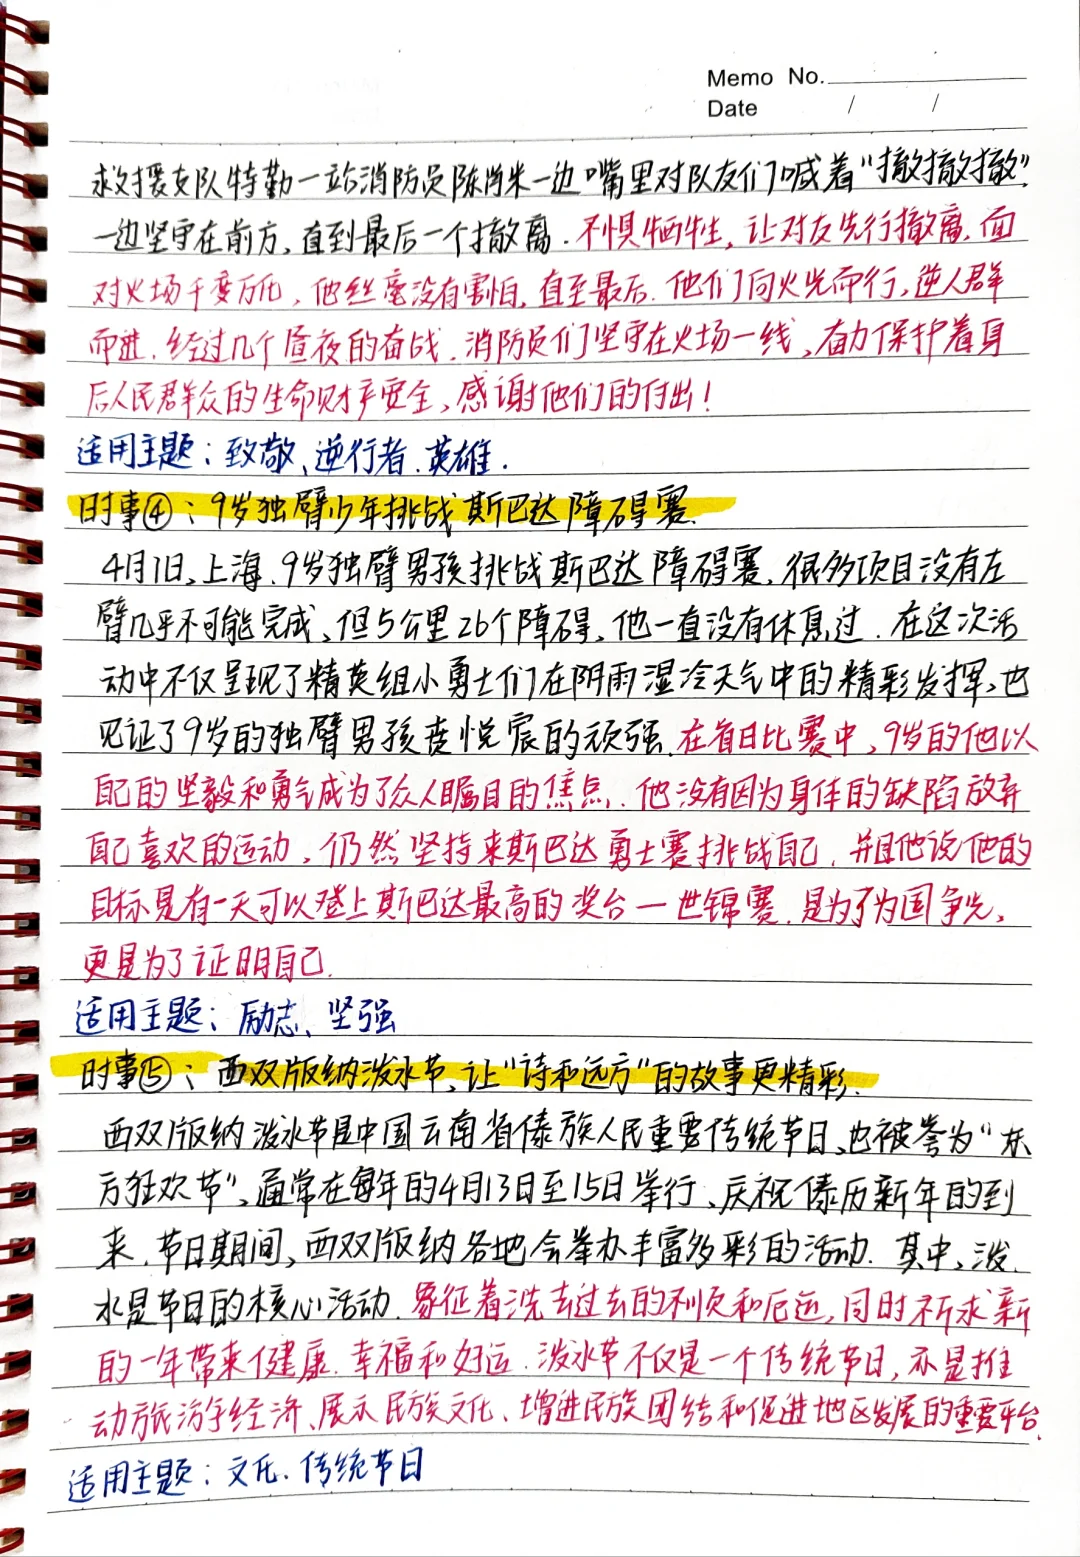 Memo No.
Date / /
救援支队特勤一站消防员陈尚米一边嘴里对队友们喊着“撤撤撤”
一边坚守在前方,直到最后一个撤离.不惧牺牲,让对友先行撤离,面
对火场千变万化,他丝毫没有害怕,直至最后.他们向火光而行,逆人群
而进.经过几个昼夜的奋战.消防员们坚守在火场一线、奋力保护着身
后人民群众的生命财产安全、感谢他们的付出!
适用主题:致敬、逆行者.英雄.
时事④:9岁独臂少年挑战斯巴达障碍赛.
4月1日,上海.9岁独臂男孩挑战斯巴达障碍赛、很多项目没有左
臂几乎不可能完成、但5公里26个障碍、他一直没有休息过.在这次活
动中不仅呈现了精英组小勇士们在阴雨湿冷天气中的精彩发挥、也
见证了9岁的独臂男孩黄悦宸的顽强.在首日比赛中,9岁的他以
自己的坚毅和勇气成为了众人瞩目的焦点.他没有因为身体的缺陷放弃
自己喜欢的运动、仍然坚持来斯巴达勇士赛挑战自己.并且他说他的
目标是有一天可以登上斯巴达最高的奖台一世锦赛.是为了为国争光、
更是为了证明自己.
适用主题:励志、坚强
时事⑤:西双版纳泼水节、让“诗和远方”的故事更精彩.
西双版纳泼水节是中国云南省傣族人民重要传统节日、也被誉为“东
方狂欢节”、通常在每年的4月13日至15日举行、庆祝傣历新年的到
来.节日期间,西双版纳各地会举办丰富多彩的活动.其中、泼
水是节日的核心活动.象征着洗去过去的不顺和厄运,同时祈求新
的一年带来健康.幸福和好运.泼水节不仅是一个传统节日,亦是推
动旅游经济、展示民族文化、增进民族团结和促进地区发展的重要平台.
适用主题:文化.传统节日